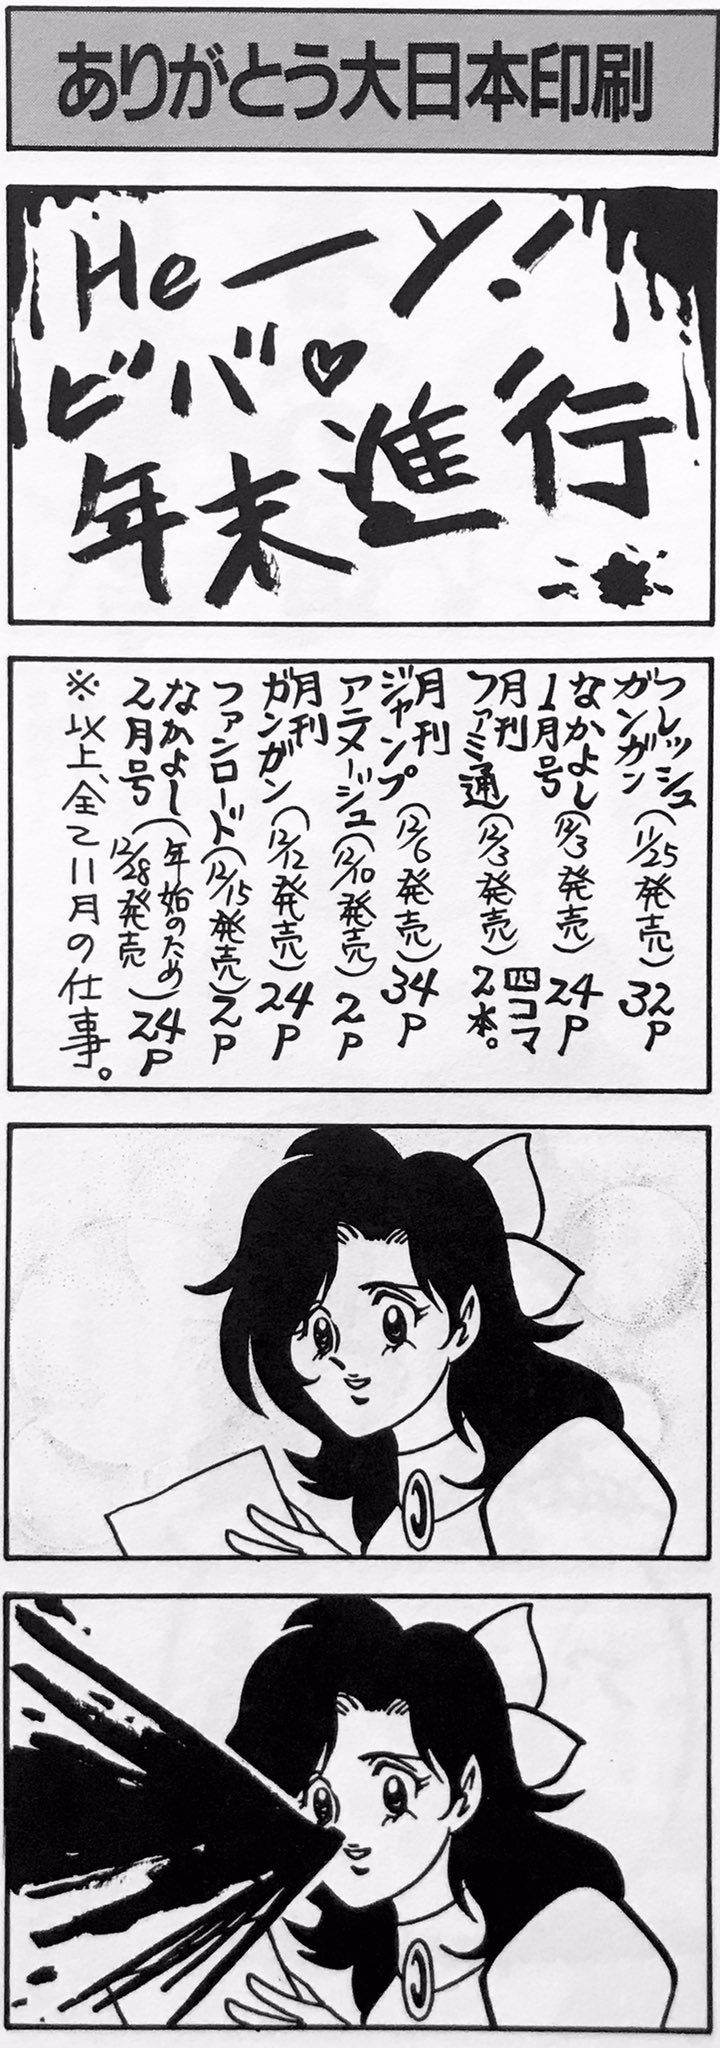 ありがとう大日本印刷
Heーイ!
ビバ♡
年末進行
フレッシュ
ガンガン(11/25発売)32P
なかよし
1月号(12/3発売)24P
月刊
ファミ通(12/3発売)四コマ
2本。
月刊
ジャンプ(12/6発売)34P
アニメージュ(12/10発売)2P
月刊
ガンガン(12/12発売)24P
ファンロード(12/15発売)2P
なかよし
2月号(年始のため
12/28発売)24P
※以上、全て11月の仕事。